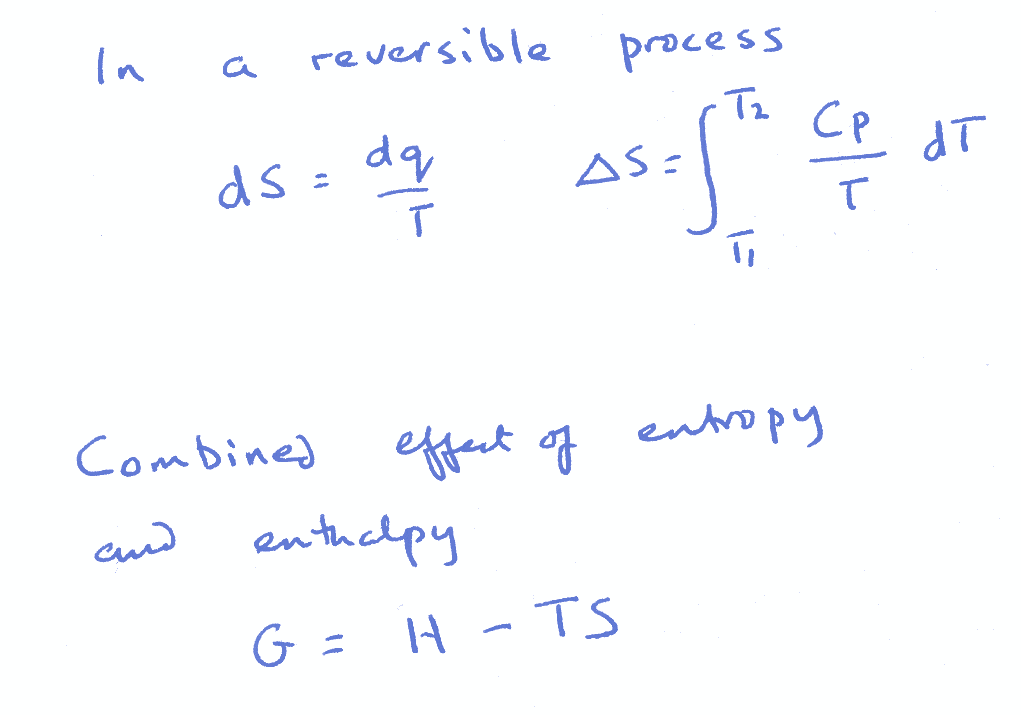 In a reversible process
dS = dq/T ΔS = ∫_{T1}^{T2} Cp/T dT
Combined effect of entropy
and enthalpy
G = H - TS